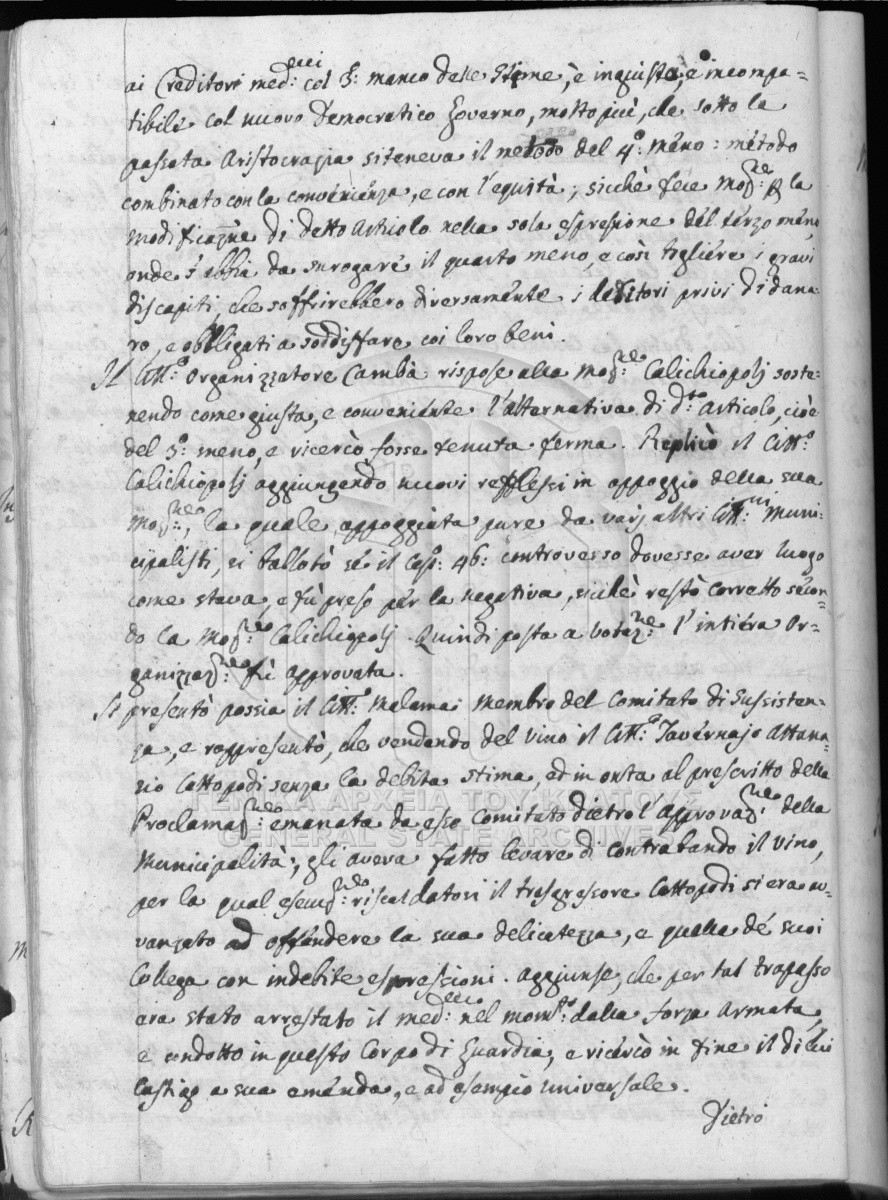 ai Creditori med:ecci col 3:º manco delle Stime, è ingiusta, e incompa=
tibile col nuovo Democratico Governo, molto più, che sotto la
passata Aristocrazia si teneva il metodo del 4:º meno: metodo
combinato con la conveniénza, e con l'equità; sicchè fece moz:ne p la
modificaz̃ne di detto Articolo nella sola espressione dél térzo méno,
onde s'abbia da surogaré il quarto meno, e così togliére i gravi
discapiti, che soffrirebbero diversaménte i debitori privi di dana=
ro, e obbligati a soddisfare coi loro beni.
Il Citt:º Organizzatore Cambà rispose alla moz:ne Calichiopolj soste=
nendo come giusta, e conveniénte l'alternativa di d:to Articolo, cioè
del 3:º meno, e ricercò fosse tenuta ferma. Replicò il Citt:º
Calichiopolj aggiungendo nuovi refflessi in appoggio della sua
moz:ne, la quale appoggiata pure da varj altri Citt:ni Muni=
cipalisti, si ballotò sé il Cap: 46: controverso dovesse aver luogo
come stava, e fù preso pér la negativa, sicchè restò corretto sécon=
do la moz:ne Calichiopolj. Quindi posta a votaz:ne l'intiéra Or=
ganizzaz:ne fù approvata.
Si presentò poscia il Citt:º Malamai Membro del Comitato di Sussisten=
za, e rappresentò, che vendendo del vino il Citt:º Tavérnajo Attana=
sio Cattopodi senza la debita stima, ad in onta al prescritto della
Proclamaz:ne emanata da esso Comitato dietro l'approvaz:ne della
Municipalità, gli aveva fatto levare di contrabando il vino,
per la qual esecuz:ne riscaldatosi il trasgressore Cattopodi si era a=
vanzato ad offéndere la sua delicatezza, e quella dé suoi
Collega con indebite espressioni. Aggiunse, che per tal trapasso
era stato arrestato il med:mo nel mom:to dalla forza Armata,
e condotto in questo Corpo di Guardia, e ricércò in fine il di lui
Castigo a sua eménda, e ad esempio universale.
Dietro